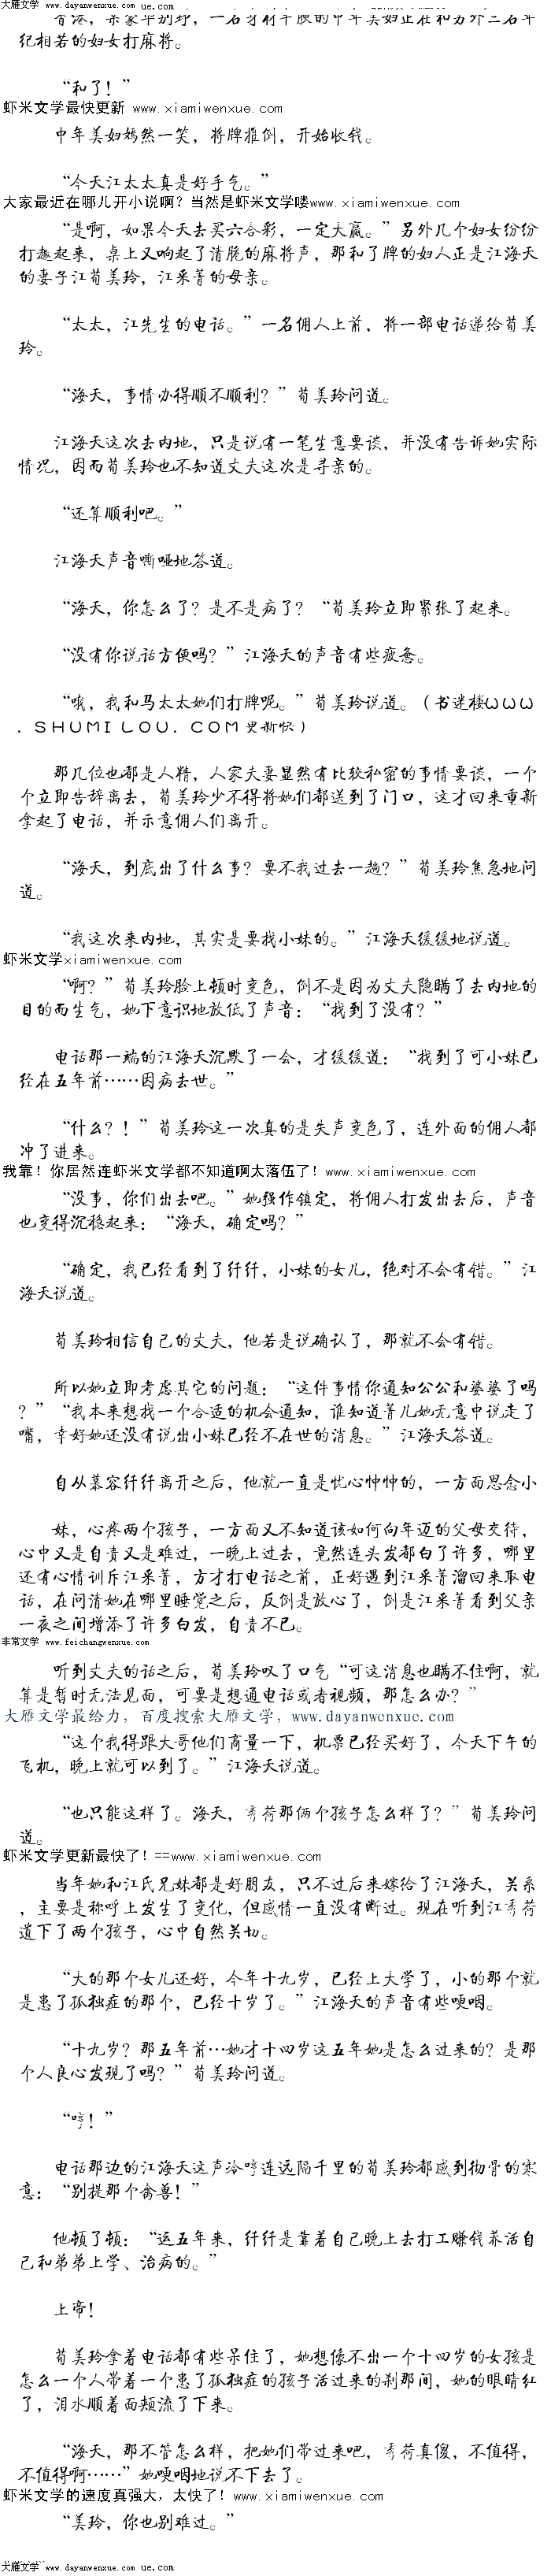 大雁文学 www.dayanwenxue.com ue.com
香港，余家华别墅，一名身材丰腴的中年美妇正在和另外三名年
纪相若的妇女打麻将。
“和了！”
虾米文学最快更新 www.xiamiwenxue.com
中年美妇嫣然一笑，将牌推倒，开始收钱。
“今天江太太真是好手气。”
大家最近在哪儿开小说啊？当然是虾米文学喽www.xiamiwenxue.com
“是啊，如果今天去买六合彩，一定大赢。”另外几个妇女纷纷
打趣起来，桌上又响起了清脆的麻将声，那和了牌的妇人正是江海天
的妻子江荀美玲，江采菁的母亲。
“太太，江先生的电话。”一名佣人上前，将一部电话递给荀美
玲。
“海天，事情办得顺不顺利？”荀美玲问道。
江海天这次去内地，只是说有一笔生意要谈，并没有告诉她实际
情况，因而荀美玲也不知道丈夫这次是寻亲的。
“还算顺利吧。”
江海天声音嘶哑地答道。
“海天，你怎么了？是不是病了？“荀美玲立即紧张了起来。
“没有你说话方便吗？”江海天的声音有些疲惫。
“哦，我和马太太她们打牌呢。”荀美玲说道。（书迷楼ωωω
．ＳＨＵＭＩＬＯＵ．ＣＯＭ更新快）
那几位也都是人精，人家夫妻显然有比较私密的事情要谈，一个
个立即告辞离去，荀美玲少不得将她们都送到了门口，这才回来重新
拿起了电话，并示意佣人们离开。
“海天，到底出了什么事？要不我过去一趟？”荀美玲焦急地问
道。
“我这次来内地，其实是要找小妹的。”江海天缓缓地说道。
虾米文学xiamiwenxue.com
“啊？”荀美玲脸上顿时变色，倒不是因为丈夫隐瞒了去内地的
目的而生气，她下意识地放低了声音：“找到了没有？”
电话那一端的江海天沉默了一会，才缓缓道：“找到了可小妹已
经在五年前……因病去世。”
“什么？！”荀美玲这一次真的是失声变色了，连外面的佣人都
冲了进来。
我靠！你居然连虾米文学都不知道啊太落伍了！www.xiamiwenxue.com
“没事，你们出去吧。”她强作镇定，将佣人打发出去后，声音
也变得沉稳起来：“海天，确定吗？”
“确定，我已经看到了纤纤，小妹的女儿，绝对不会有错。”江
海天说道。
荀美玲相信自己的丈夫，他若是说确认了，那就不会有错。
所以她立即考虑其它的问题：“这件事情你通知公公和婆婆了吗
？”“我本来想找一个合适的机会通知，谁知道菁儿她无意中说走了
嘴，幸好她还没有说出小妹已经不在世的消息。”江海天答道。
自从慕容纤纤离开之后，他就一直是忧心忡忡的，一方面思念小
妹，心疼两个孩子，一方面又不知道该如何向年迈的父母交待，
心中又是自责又是难过，一晚上过去，竟然连头发都白了许多，哪里
还有心情训斥江采菁，方才打电话之前，正好遇到江采菁溜回来取电
话，在问清她在哪里睡觉之后，反倒是放心了，倒是江采菁看到父亲
一夜之间增添了许多白发，自责不已。
非常文学 www.feichangwenxue.com
听到丈夫的话之后，荀美玲叹了口气“可这消息也瞒不住啊，就
算是暂时无法见面，可要是想通电话或者视频，那怎么办？”
大雁文学最给力，百度搜索大雁文学，www.dayanwenxue.com
“这个我得跟大哥他们商量一下，机票已经买好了，今天下午的
飞机，晚上就可以到了。”江海天说道。
“也只能这样了。海天，秀荷那俩个孩子怎么样了？”荀美玲问
道。
虾米文学更新最快了！==www.xiamiwenxue.com
当年她和江氏兄妹都是好朋友，只不过后来嫁给了江海天，关系
，主要是称呼上发生了变化，但感情一直没有断过。现在听到江秀荷
遗下了两个孩子，心中自然关切。
“大的那个女儿还好，今年十九岁，已经上大学了，小的那个就
是患了孤独症的那个，已经十岁了。”江海天的声音有些哽咽。
“十九岁？那五年前…她才十四岁这五年她是怎么过来的？是那
个人良心发现了吗？”荀美玲问道。
“哼！”
电话那边的江海天这声冷哼连远隔千里的荀美玲都感到彻骨的寒
意：“别提那个禽兽！”
他顿了顿：“这五年来，纤纤是靠着自己晚上去打工赚钱养活自
己和弟弟上学、治病的。”
上帝！
荀美玲拿着电话都有些呆住了，她想像不出一个十四岁的女孩是
怎么一个人带着一个患了孤独症的孩子活过来的刹那间，她的眼睛红
了，泪水顺着面颊流了下来。
“海天，那不管怎么样，把她们带过来吧，秀荷真傻，不值得，
不值得啊……”她哽咽地说不下去了。
虾米文学的速度真强大，太快了！www.xiamiwenxue.com
“美玲，你也别难过。”
大雁文学 www.dayanwenxue.com ue.com